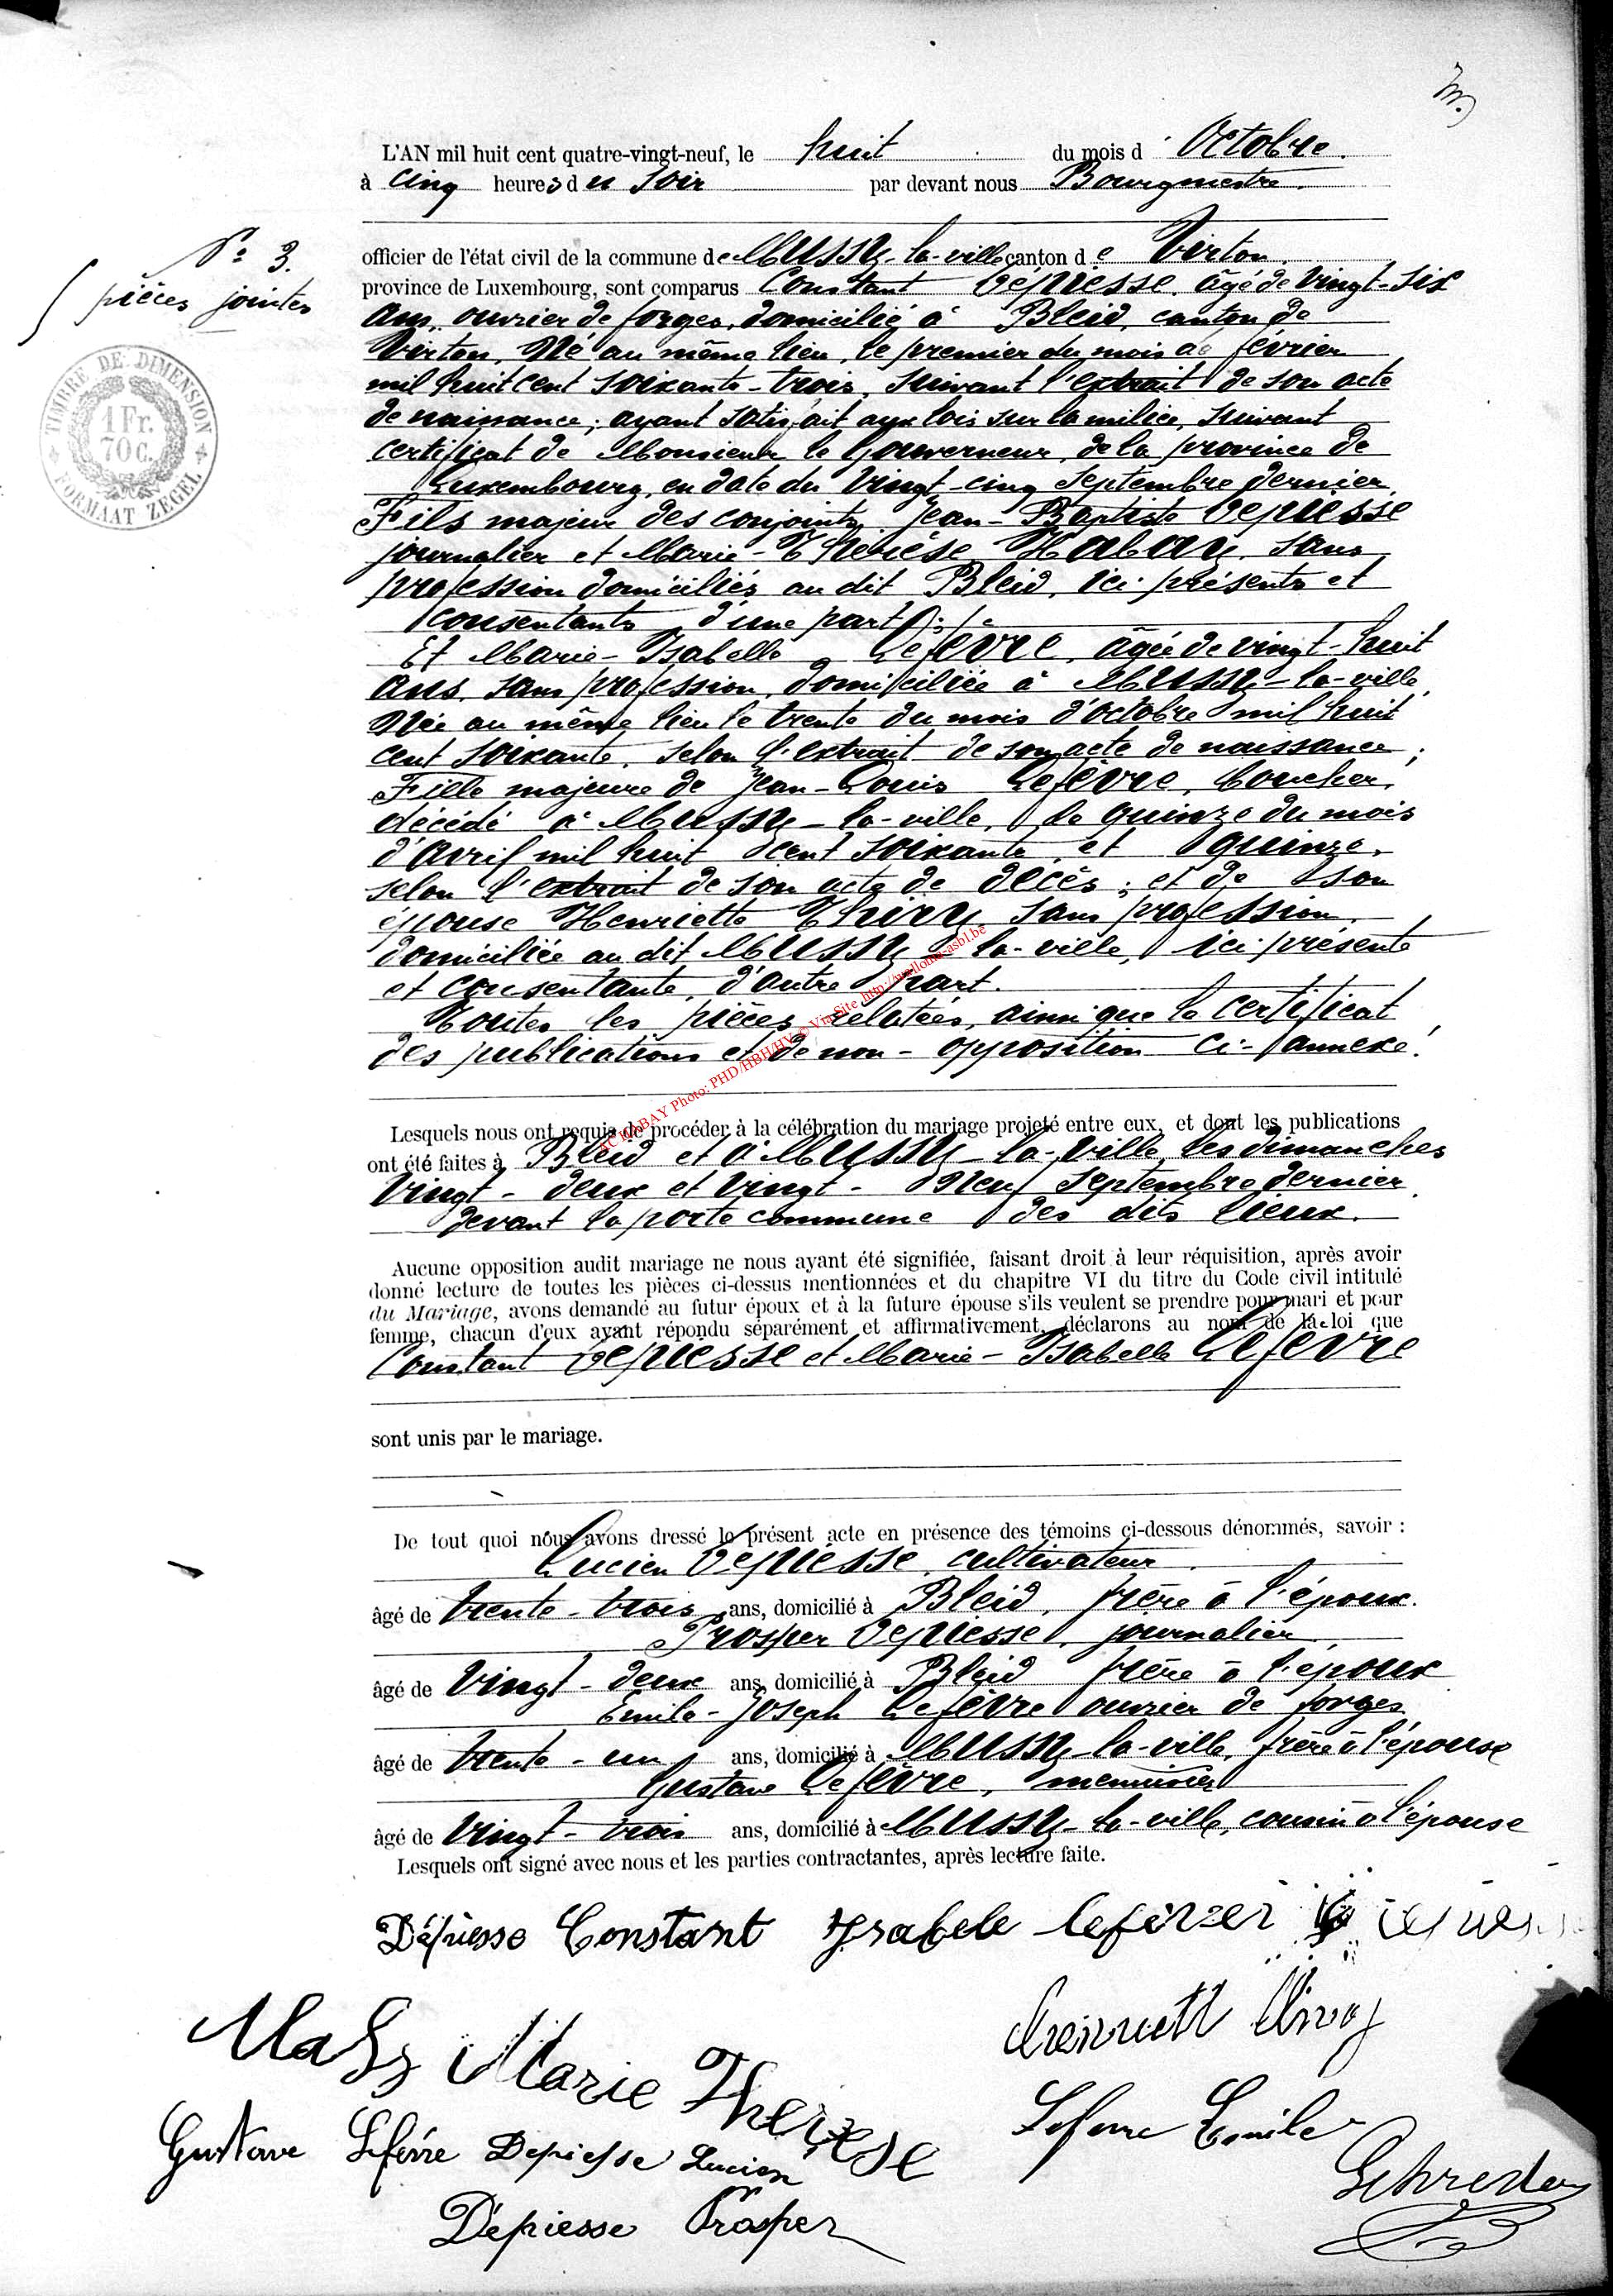 L'AN mil huit cent quatre-vingt-neuf, le huit du mois d'Octobre.
à cinq heures du soir par devant nous Bourgmestre.
N° 3.
pièces jointes
officier de l'état civil de la commune de Mussy-la-ville canton de Virton.
province de Luxembourg, sont comparus Constant Dépiesse, âgé de vingt-six
ans, ouvrier de forges, domicilié à Bleid, canton de
Virton, Né au même lieu, le premier du mois de février
mil huit cent soixante-trois, suivant l'extrait de son acte
de naissance; ayant satisfait aux lois sur la milice, suivant
certificat de Monsieur le Gouverneur de la province de
Luxembourg, en date du vingt-cinq septembre dernier
Fils majeur des conjoints Jean-Baptiste Depiesse
journalier et Marie-Thérèse Habay, sans
profession domiciliés au dit Bleid, ici présents et
consentants d'une part;
Et Marie-Isabelle Lefèvre, âgée de vingt-huit
ans, sans profession, domiciliée à Mussy-la-ville,
Née au même lieu le trente du mois d'octobre mil huit
cent soixante, selon l'extrait de son acte de naissance;
Fille majeure de Jean-Louis Lefèvre, boucher,
décédé à Mussy-la-ville, le quinze du mois
d'Avril mil huit cent soixante et quinze,
selon l'extrait de son acte de décès; et de son
épouse Henriette Thiry, sans profession,
domiciliée au dit Mussy-la-ville, ici présente
et consentante, d'autre part.
Toutes les pièces relatées, ainsi que le certificat
des publications et de non-opposition ci-annexé.
SCHABAY Photo: PHD/HBH/HV © Via Site http://wallonia-asbl.be
Lesquels nous ont requis de procéder à la célébration du mariage projeté entre eux, et dont les publications
ont été faites à Bleid et à Mussy-la-ville, les dimanches
vingt-deux et vingt-neuf septembre dernier
devant la porte commune des dits lieux.
Aucune opposition audit mariage ne nous ayant été signifiée, faisant droit à leur réquisition, après avoir
donné lecture de toutes les pièces ci-dessus mentionnées et du chapitre VI du titre du Code civil intitulé
du Mariage, avons demandé au futur époux et à la future épouse s'ils veulent se prendre pour mari et pour
femme, chacun d'eux ayant répondu séparément et affirmativement, déclarons au nom de la loi que
Constant Depiesse et Marie-Isabelle Lefèvre
sont unis par le mariage.
De tout quoi nous avons dressé le présent acte en présence des témoins ci-dessous dénommés, savoir :
Lucien Depiesse, cultivateur
âgé de trente-trois ans, domicilié à Bleid, frère à l'époux.
Prosper Depiesse, journalier
âgé de vingt-deux ans, domicilié à Bleid frère à l'époux
Emile-Joseph Lefèvre ouvrier de forges
âgé de trente-un ans, domicilié à Mussy-la-ville, frère à l'épouse
Gustave Lefèvre, menuisier
âgé de vingt-trois ans, domicilié à Mussy-la-ville, cousin à l'épouse
Lesquels ont signé avec nous et les parties contractantes, après lecture faite.
Dépiesse Constant Isabele
Marie Therese
Gustave Lefèvre Depiesse Lucien Emile
Dépiesse Prosper
TIMBRE DE DIMENSION
1 Fr.
70 C.
FORMAAT ZEGEL